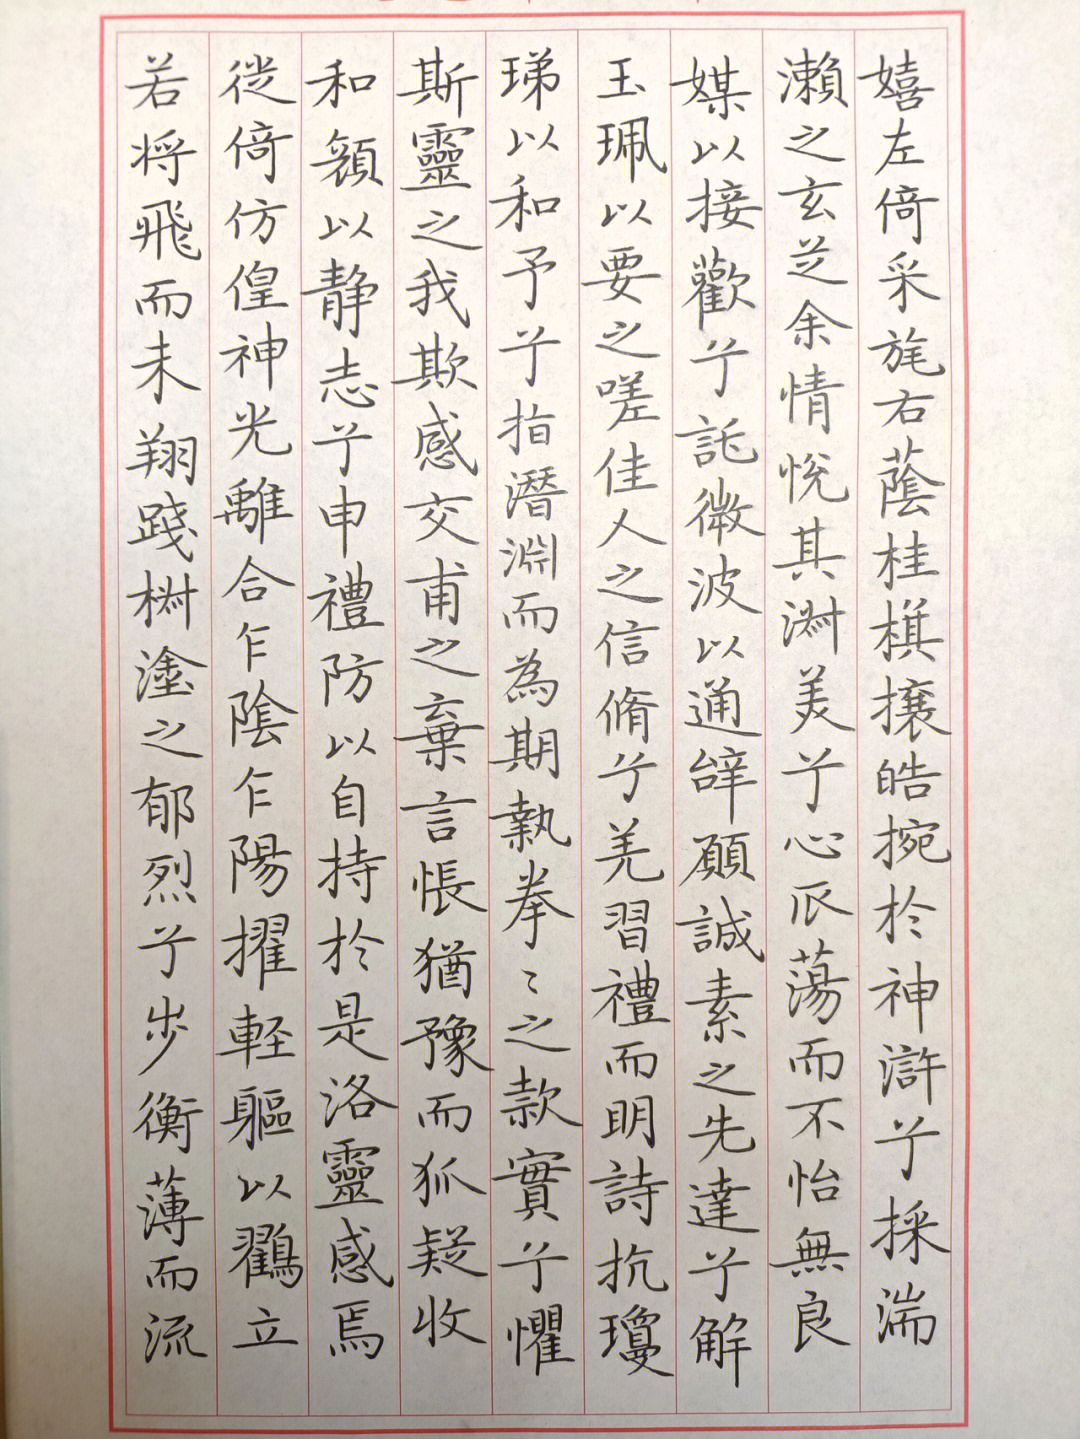 嬉左倚采旄右蔭桂棋攘皓捥於神滸兮採湍
瀨之玄芝余情悅其淑美兮心𠂢蕩而不怡無良
媒以接歡兮託微波以通辝願誠素之先達兮解
玉珮以要之嗟佳人之信脩兮羌習禮而明詩抗瓊
珶以和予兮指潛淵而為期執拳〻之款實兮懼
斯靈之我欺感交甫之棄言悵猶豫而狐疑收
和顏以静志兮申禮防以自持於是洛靈感焉
徙倚仿偟神光離合乍陰乍陽擢軽軀以鸖立
若将飛而未翔踐椒塗之郁烈兮步衡薄而流